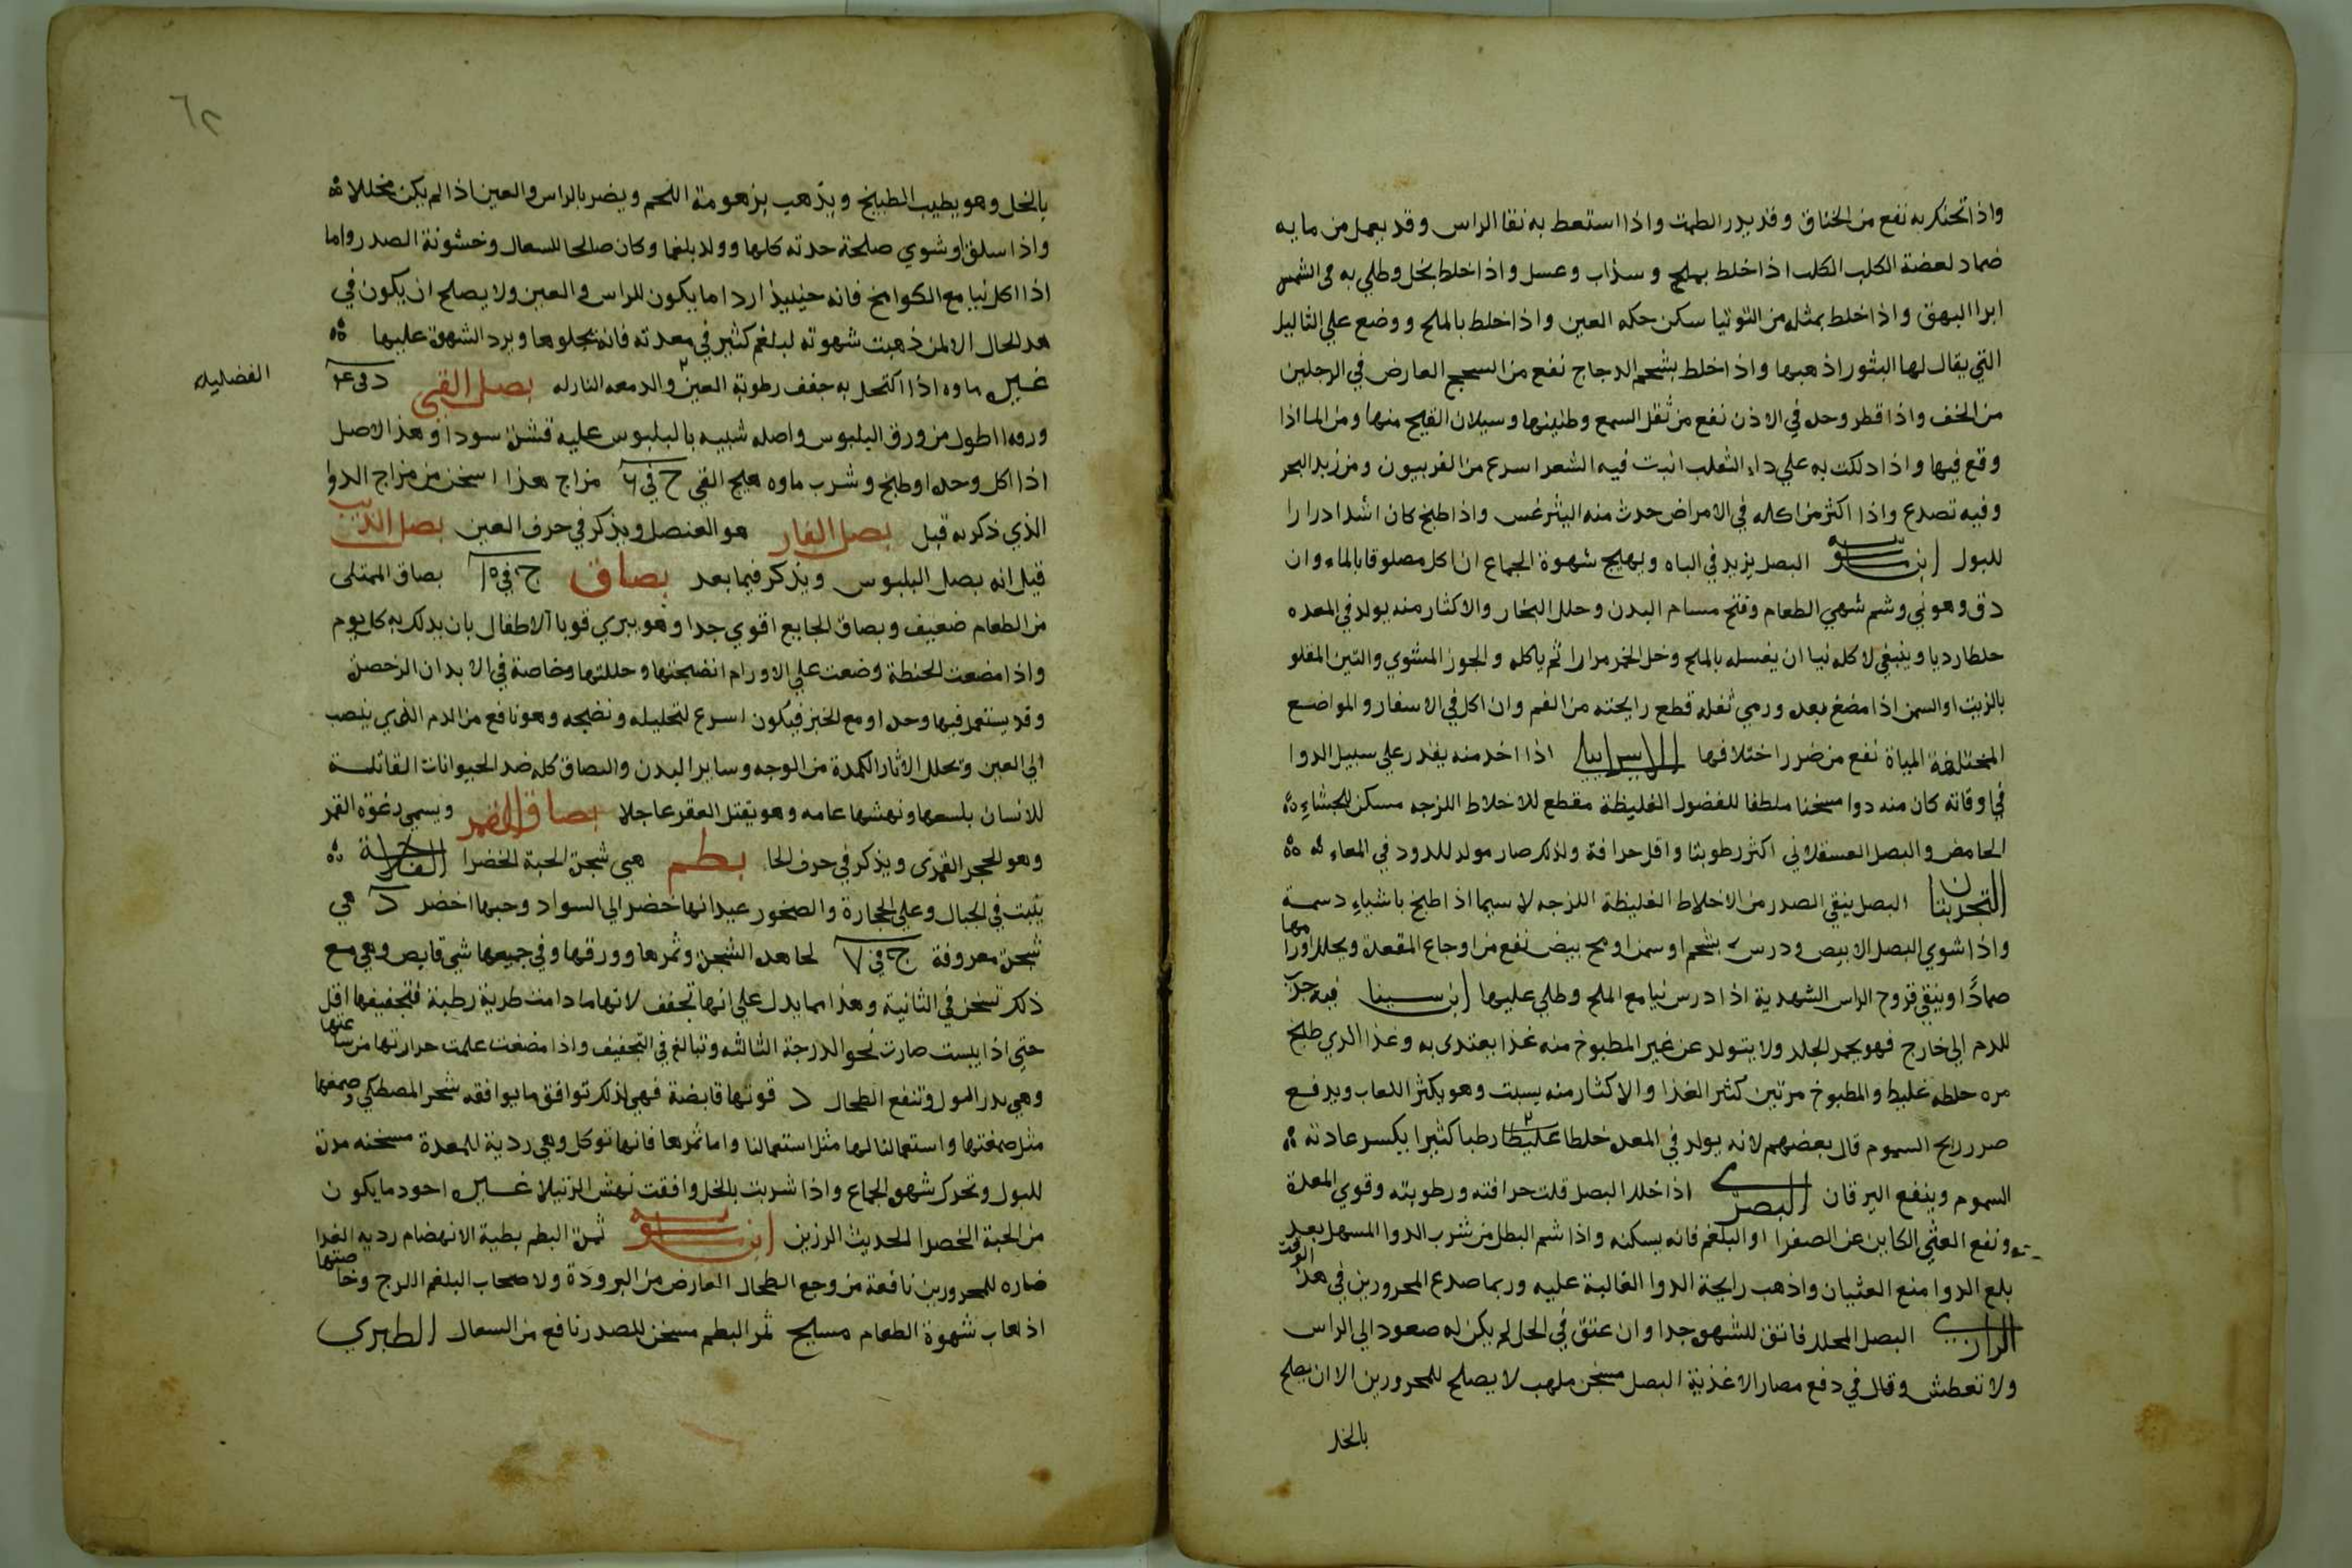 واذا تحنك به نفع من الخناق وقد يدر الطمث واذا استعط به نقا الراس وقد يعمل من مايه
ضماد لعضة الكلب الكلب اذا خلط بملح وسذاب وعسل واذا خلط بخل وطلي به في الشمس
ابرا البهق واذا خلط بمثله من التوتيا سكن حكه العين واذا خلط بالملح ووضع علي الثاليل
التي يقال لها البثور اذهبها واذا خلط بشحم الدجاج نفع من السحج العارض في الرجلين
من الخف واذا قطر وحده في الاذن نفع من ثقل السمع وطنينها وسيلان القيح منها ومن الما اذا
وقع فيها واذا دلك به علي داء الثعلب انبت فيه الشعر اسرع من الفربيون ومن زبد البحر
وفيه تصدع واذا اكثر من اكله في الامراض حدث منه اليثرغس واذا طبخ كان اشد ادرارا
للبول ابن ماسويه البصل يزيد في الباه ويهيج شهوة الجماع ان اكل مصلوقا بالماء وان
دق وهو ني وشم شهي الطعام وفتح مسام البدن وحلل البخار والاكثار منه يولد في المعده
خلطا رديا وينبغي لاكله نيا ان يغسله بالملح وخل الخمر مرارا ثم ياكله والجوز المشوي والتين المقلو
بالزيت او السمن اذا مضغ بعده ورمي ثفله قطع رايحته من الفم وان اكل في الاسفار والمواضع
المختلفة المياة نفع من ضرر اختلافها الاسرايلي اذا اخد منه بقدر علي سبيل الدوا
في اوقاته كان منه دوا مسخنا ملطفا للفضول الغليظة مقطع للاخلاط اللزجه مسكن للجشاء
الحامض والبصل العسقلاني اكثر رطوبتا واقل حرافة ولذلك صار مولد للدود في المعاء
التجربتان البصل ينقي الصدر من الاخلاط الغليظة اللزجه لا سيما اذا طبخ باشياء دسمة
واذا شوي البصل الابيض ودرس بشحم او سمن او مح بيض نفع من اوجاع المقعدة ويحلل اورامها
ضمادًا وينقي قروح الراس الشهدية اذا درس نيا مع الملح وطلي عليها ابن سينا فيه جذب
للدم الي خارج فهو يحمر الجلد ولا يتولد عن غير المطبوخ منه غذا يعتدى به وغذا الدي طبخ
مره خلطه غليط والمطبوخ مرتين كثير الغذا والاكثار منه يسبت وهو يكثر اللعاب ويدفع
ضرر ريح السموم قال بعضهم لانه يولد في المعده خلطا غليظا رطبا كثيرا يكسر عادته
السموم وينفع اليرقان البصري اذا خلل البصل قلت حرافته ورطوبته وقوي المعدة
ونفع الغثي الكاين عن الصفرا او البلغم فانه يسكنه واذا شم البصل من شرب الدوا المسهل بعد
بلع الدوا منع الغثيان واذهب رايحة الدوا الغالبة عليه وربما صدع المحرورين في هذا الوقت
الرازي البصل المخلل فاتق للشهوه جدا وان عتق في الخل لم يكن له صعود الي الراس
ولا تعطش وقال في دفع مضار الاغذية البصل مسخن ملهب لا يصلح للمحرورين الا ان يصلح
بالخل
٦٢
بالخل وهو يطيب الطبيخ ويذهب بزهومة اللحم ويضر بالراس والعين اذا لم يكن مخللا
واذا سلق او شوي صلحة حدته كلها وولد بلغما وكان صالحا للسعال وخشونة الصدر واما
اذا اكل نيا مع الكوامخ فانه حينيذ اردا ما يكون للراس والعين ولا يصلح ان يكون في
هده الحال الا لمن ذهبت شهوته لبلغم كثير في معدته فانه يجلوها ويرد الشهوة عليها
غيره ماوه اذا اكتحل به جفف رطوبة العين والدمعه النازله بصل القي د في ٤
الفضليله
وروه اطول من ورق البلبوس واصله شبيه بالبلبوس عليه قشره سودا وهذا الاصل
اذا اكل وحده او طبخ وشرب ماوه هيج القي ح في ٦ مزاج هذا اسخن من مزاج الدوا
الذي ذكر به قبل بصل الفار هو العنصل ويذكر في حرف العين بصل الذيب
قيل انه بصل البلبوس ويذكر فيما بعد بصاق ج في ١٥ بصاق الممتلى
من الطعام ضعيف وبصاق الجايع اقوي جدا وهو يبري قوبا الاطفال بان يدلك به كل يوم
واذا مضغت الحنطة وضعت علي الاورام انضجتها وحللتها وخاصة في الابدان الرخصه
وقد يستعمل فيها وحده او مع الخبز فيكون اسرع لتحليله ونضجه وهو نافع من الدم الذي ينصب
الي العين ويحلل الاثار الكمدة من الوجه وساير البدن والبصاق كله ضد الحيوانات القاتلة
للانسان بلسعها ونهشها عامه وهو يقتل العقرب عاجلا بصاق القمر ويسمي رغوة القمر
وهو الحجر القمري ويذكر في حرف الحا بطم هي شجرة الحبة الخضرا الفلاحة
ينبت في الجبال وعلي الحجارة والصخور عيدانها خضر الي السواد وحبها اخضر د هي
شجرة معروفة ج في ٧ لحا هده الشجرة وثمرها وورقها وفي جميعها شي قابض وهي مع
ذلك تسخن في الثانية وهذا مما يدل علي انها تجفف لانها ما دامت طرية رطبة فتجفيفها اقل
حتي اذا يبست صارت نحو الدرجة الثالثه وتبالغ في التجفيف واذا مضغت علمت حرارتها من ساعتها
وهي تدر البول وتنفع الطحال د قوتها قابضة فهي لذلك توافق ما يوافقه شجر المصطكي وصمغها
مثل صمغتها واستعمالنا لها مثل استعمالنا واما ثمرها فانها توكل وهي ردية للمعدة مسخنه مدرة
للبول وتحرك شهوه الجماع واذا شربت بالخل وافقت نهش الرتيلا غيره اجود ما يكون
من الحبة الخضرا الحديث الرزين ابن ماسويه ثمرة البطم بطية الانهضام رديه الغدا
ضاره للمحرورين نافعة من وجع الطحال العارض من البرودة ولاصحاب البلغم اللزج وخاصتها
اذهاب شهوة الطعام مسيح ثمر البطم مسخن للصدر نافع من السعال الطبري